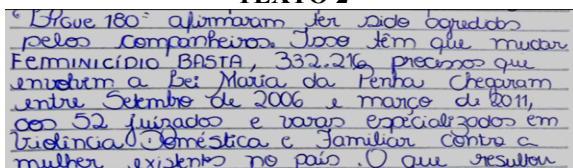 TEXTO 2
"Ligue 180" afirmaram ter sido agredidas
pelos companheiros. Isso têm que mudar
FEMINICÍDIO BASTA, 332.216 processos que
envolvem a Lei Maria da Penha chegaram
entre Setembro de 2006 e março de 2011,
aos 52 juizados e varas especializados em
Violência Doméstica e Familiar contra a
mulher existentes no país. O que resultou